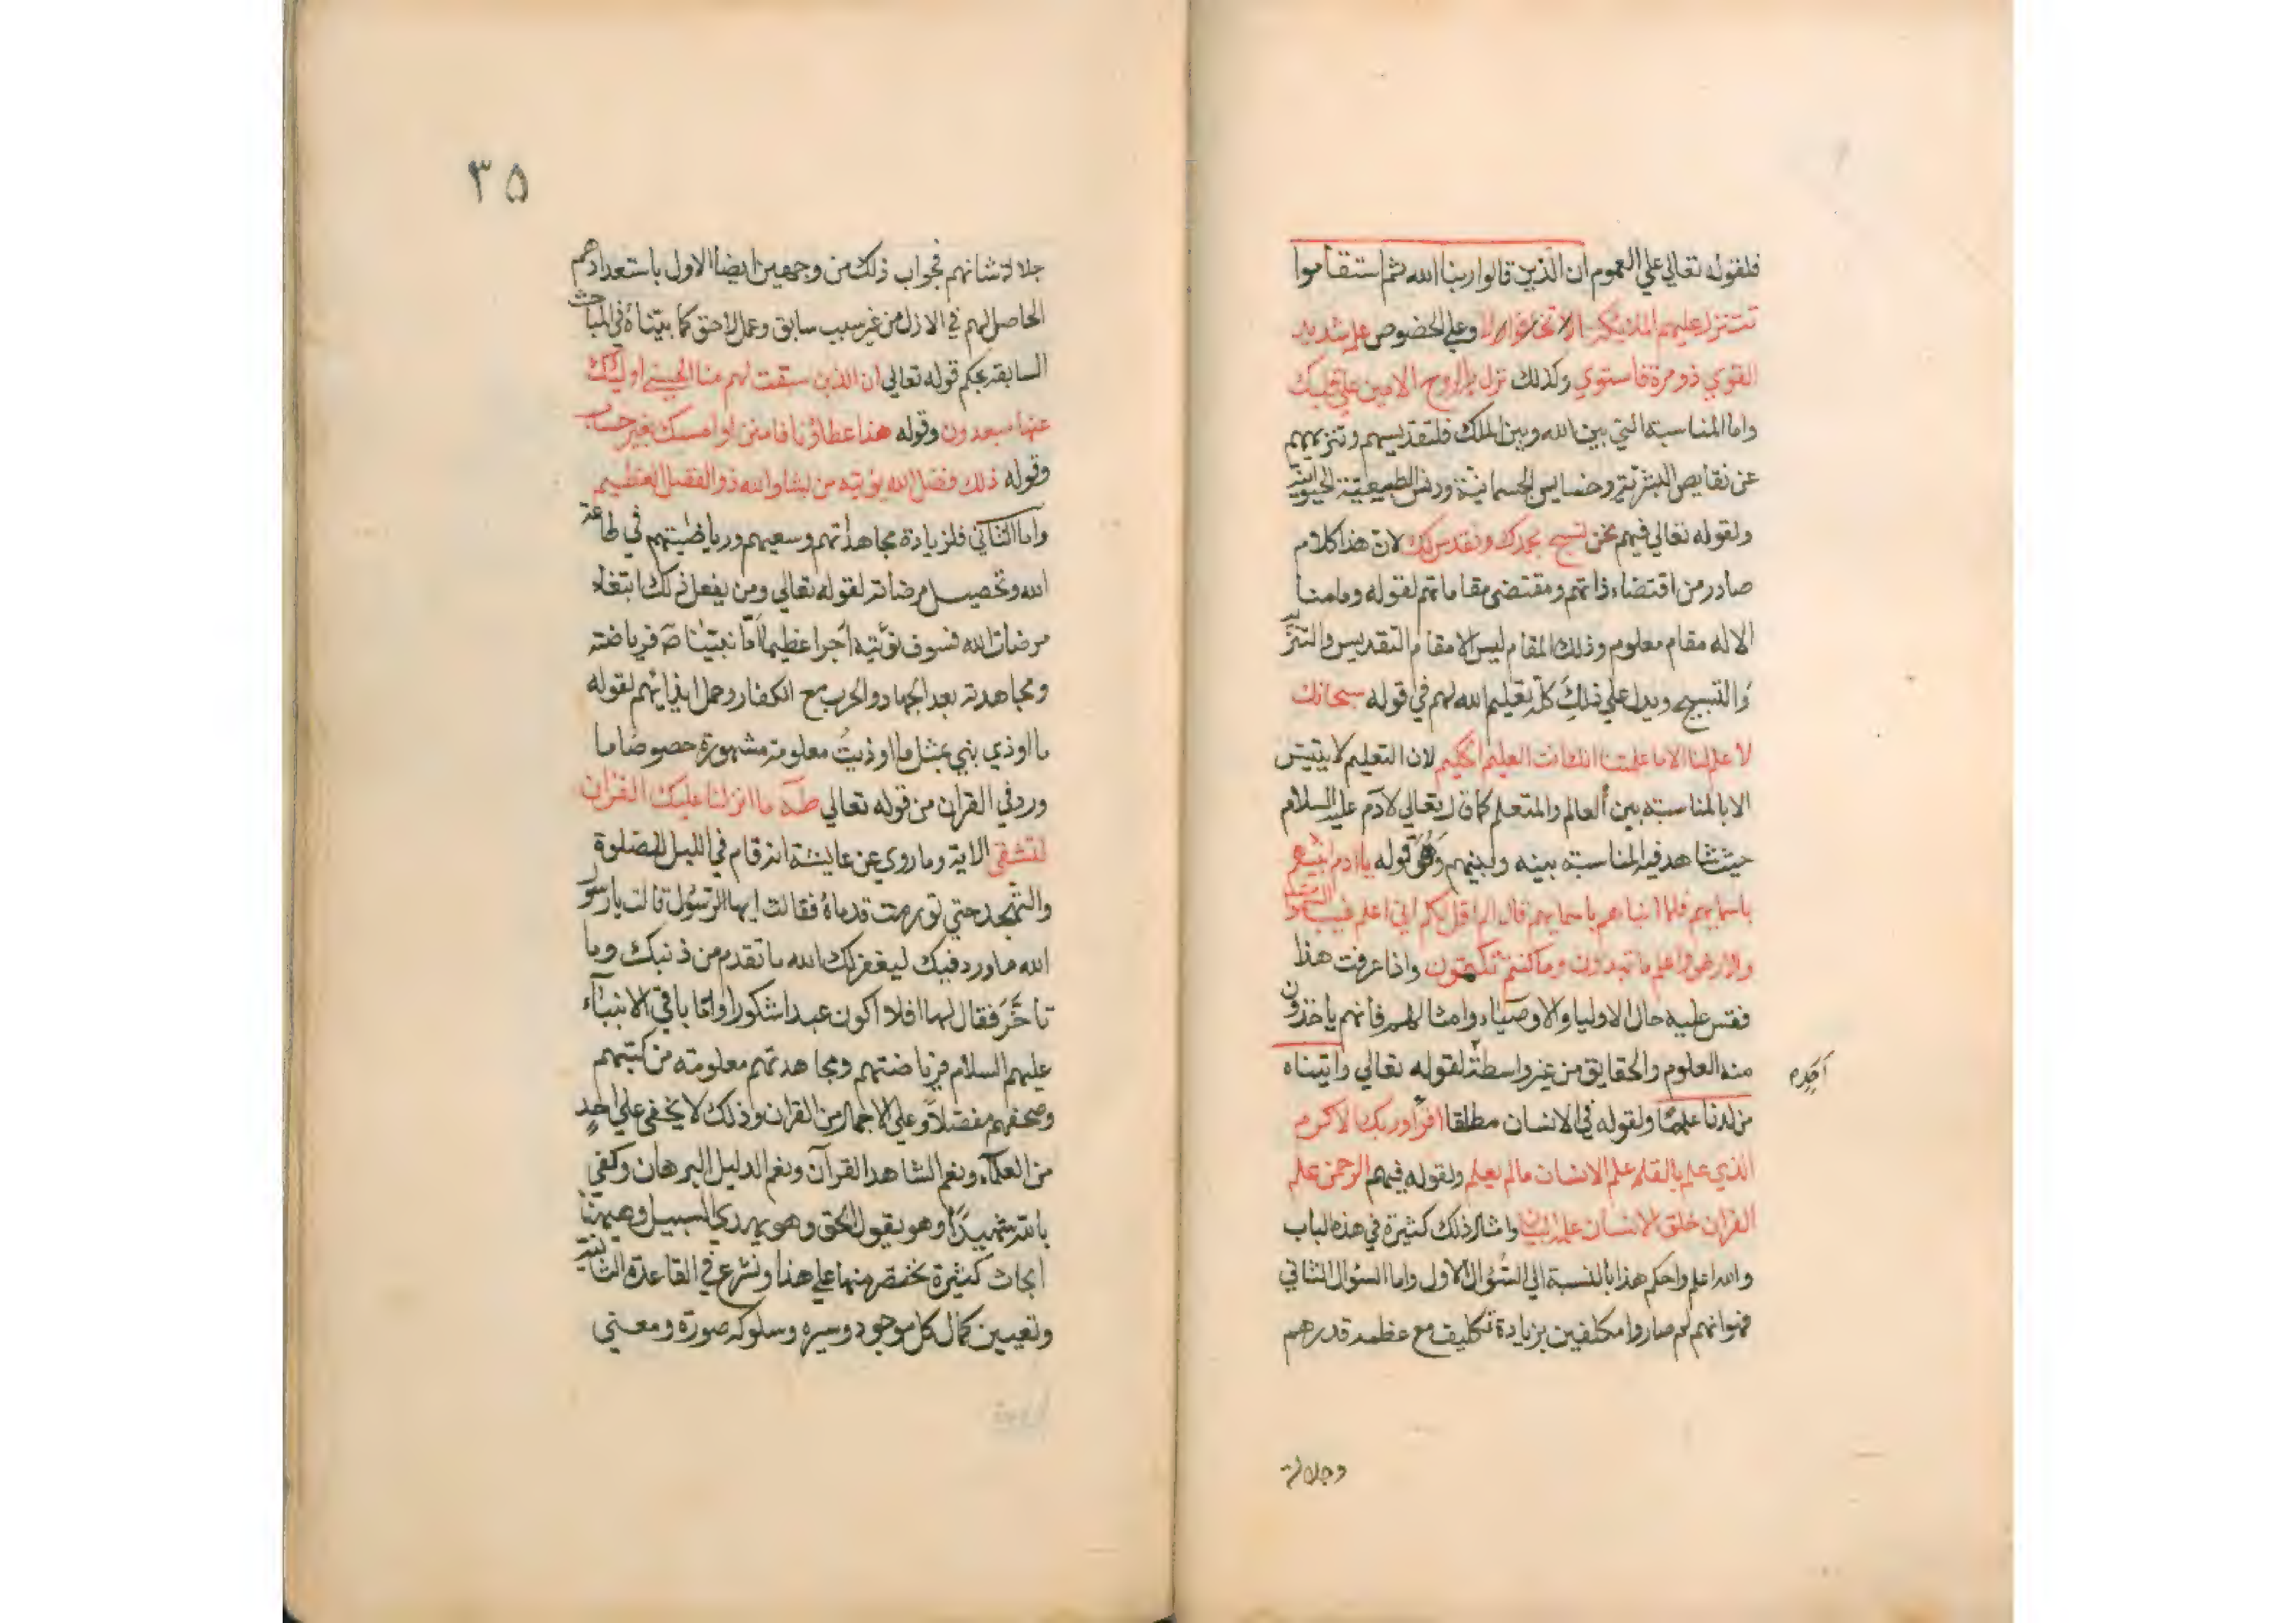 فلقوله تعالي علي العموم ان الذين قالوا ربنا الله ثم استقاموا
تتنزل عليهم الملائكة الا تخافوا ولا وعلي الخصوص علمه شديد
القوي ذو مرة فاستوي وكذلك نزل به الروح الامين علي قلبك
واما المناسبة التي بين الله وبين الملك فلتقديسهم وتنزيههم
عن نقايص البشرية وخسايس الجسمانية ودنس الطبيعية الحيوانية
ولقوله تعالي فيهم نحن نسبح بحمدك ونقدس لك لان هذا كلام
صادر من اقتضاء ذاتهم ومقتضي مقاماتهم لقوله وما منا
الا له مقام معلوم وذلك المقام ليس الا مقام التقديس والتنزيه
والتسبيح ويدل علي ذلك كله تعليم الله لهم في قوله سبحانك
لا علم لنا الا ما علمتنا انك انت العليم الحكيم لان التعليم لا يتيسر
الا بالمناسبة بين العالم والمتعلم كما قال تعالي لادم عليه السلام
حيث شاهد فيه المناسبة بينه وبينهم وهو قوله يا ادم انبئهم
باسمايهم فلما انباهم باسمايهم قال الم اقل لكم اني اعلم غيب السموات
والارض واعلم ما تبدون وما كنتم تكتمون واذا عرفت هذا
فقس عليه حال الاوليا والاوصياء وامثالهم فانهم ياخذون
منه العلوم والحقايق من غير واسطة لقوله تعالي واتيناه
من لدنا علما ولقوله في الانسان مطلقا اقرا وربك الاكرم
الذي علم بالقلم علم الانسان ما لم يعلم ولقوله فيهم الرحمن علم
القران خلق الانسان علمه البيان وامثال ذلك كثيرة في هذه الباب
والله اعلم واحكم هذا بالنسبة الي السؤال الاول واما السؤال الثاني
فهو انهم لم صاروا مكلفين بزيادة تكليف مع عظمة قدرهم
وجلالة
٣٥
جلالة شانهم فجواب ذلك من وجهين ايضا الاول باستعدادهم
الحاصل لهم في الازل من غير سبب سابق وعمل لاحق كما بيناه في المباحث
السابقة بحكم قوله تعالي ان الذين سبقت لهم منا الحسني اوليك
عنها مبعدون وقوله هذا عطاؤنا فامنن او امسك بغير حساب
وقوله ذلك فضل الله يؤتيه من يشا والله ذو الفضل العظيم
واما الثاني فلزيادة مجاهداتهم وسعيهم ورياضيتهم في طاعة
الله وتحصيل مرضاته لقوله تعالي ومن يفعل ذلك ابتغاء
مرضات الله فسوف نؤتيه اجرا عظيما اما نبينا ص فرياضته
ومجاهدته بعد الجهاد والحرب مع الكفار وحمل ايذايهم لقوله
ما اوذي نبي بمثل ما اوذيت معلومة مشهورة خصوصا ما
ورد في القران من قوله تعالي طه ما انزلنا عليك القران
لتشقي الاية وما روي عن عايشة انه قام في الليل للصلوة
والتهجد حتي تورمت قدماه فقالت ايها الرسول قالت يا رسول
الله ما ورد فيك ليغفر لك الله ما تقدم من ذنبك وما
تاخر فقال لها افلا اكون عبدا شكورا واما باقي الانبياء
عليهم السلام فرياضتهم ومجاهدتهم معلومة من كتبهم
وصحفهم مفصلا وعلي الاجمال من القران وذلك لا يخفي علي احد
من العلماء ونعم الشاهد القرآن ونعم الدليل البرهان وكفي
بالله شهيدا وهو يقول الحق وهو يهدي السبيل وهيهنا
ابحاث كثيرة نختصر منها علي هذا ونشرع في القاعدة الثانية
وتعيين كمال كل موجود وسيره وسلوكه صورة ومعني